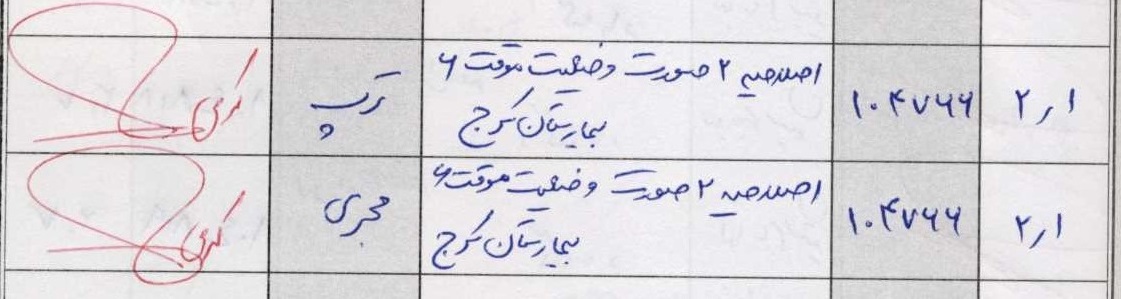 ۲٫۱ ۱۰۴۷۶۶ اصلاحیه ۲ صورت وضعیت موقت ۶
بیمارستان کرج
۲٫۱ ۱۰۴۷۶۶ اصلاحیه ۲ صورت وضعیت موقت ۶ مجری
بیمارستان کرج